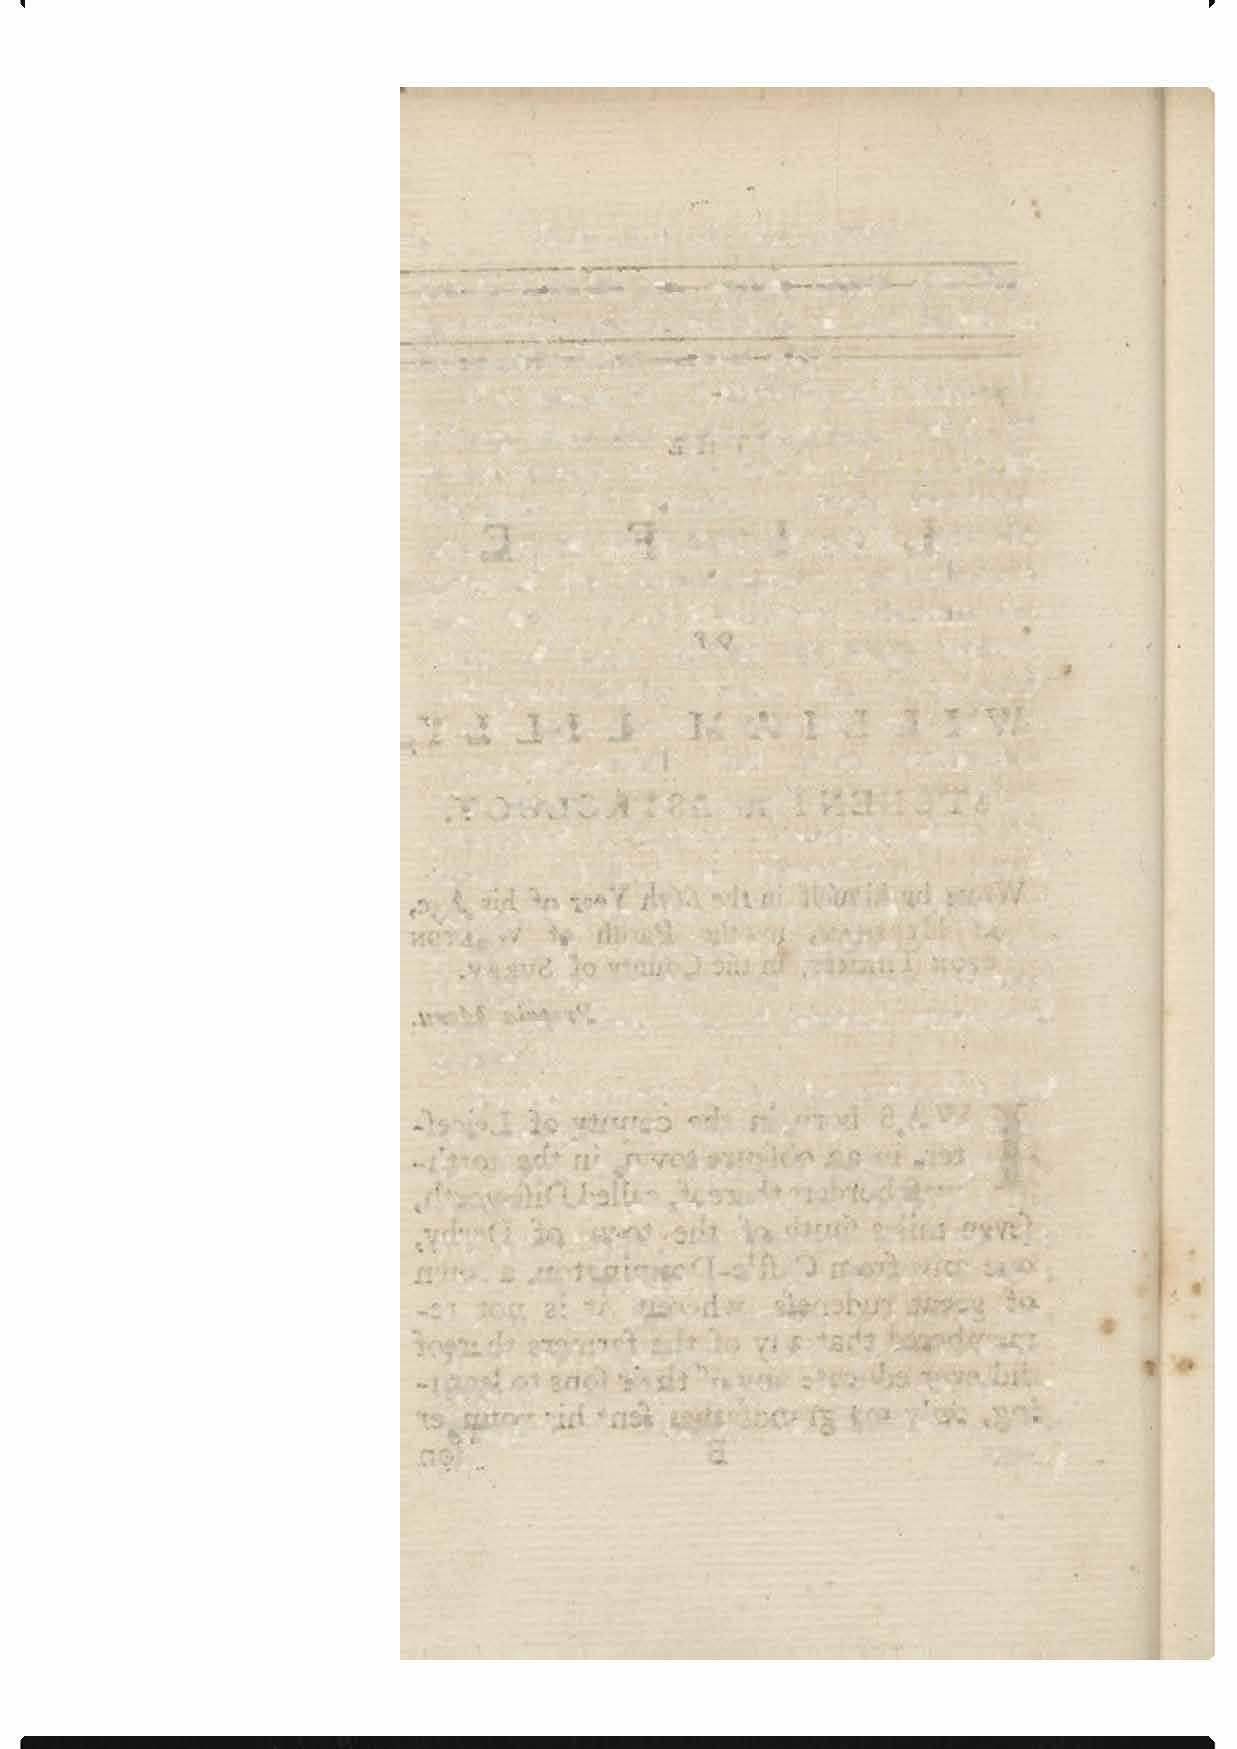 THE
L I F E
OF
WILLIAM LILLY,
STUDENT in ASTROLOGY.
Wrote by himself in the 66th Year of his Age,
at Hersham, in the Parish of WALTON
UPON THAMES, in the County of SURRY.
Propria Manu.
I WAS born in the county of Leices-
ter, in an obscure town, in the north-
west borders thereof, called Diseworth,
seven miles south of the town of Derby,
one mile from Castle-Donnington, a town
of great rudeness, wherein it is not re-
membered that any of the farmers thereof
did ever educate any of their sons to learn-
ing, only my grandfather sent his younger
B son